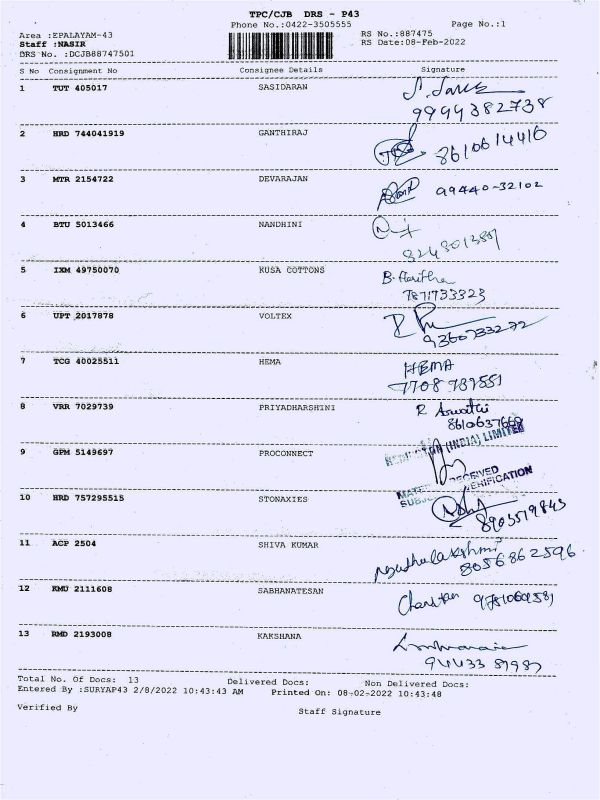 TPC/CJB DRS - P43
Phone No.:0422-3505555 Page No.:1
Area :EPALAYAM-43 RS No.:887475
Staff :NASIR RS Date:08-Feb-2022
DRS No. :DCJB88747501
S No Consignment No Consignee Details Signature
1 TUT 405017 SASIDARAN
9944382738
2 HRD 744041919 GANTHIRAJ 8610614416
3 MTR 2154722 DEVARAJAN 99440-32102
4 BTU 5013466 NANDHINI
5 IXM 49750070 KUSA COTTONS B. Haritha
7871733323
6 UPT 2017878 VOLTEX
9360733272
7 TCG 40025511 HEMA HEMA
7708787551
8 VRR 7029739 PRIYADHARSHINI R Aswathi
9 GPM 5149697 PROCONNECT (INDIA) LIMITED
RECEIVED
SUBJ VERIFICATION
10 HRD 757295515 STONAXIES
8903519843
11 ACP 2504 SHIVA KUMAR
8056862596
12 KMU 2111608 SABHANATESAN
13 RMD 2193008 KAKSHANA
Total No. Of Docs: 13 Delivered Docs: Non Delivered Docs:
Entered By :SURYAP43 2/8/2022 10:43:43 AM Printed On: 08-02-2022 10:43:48
Verified By Staff Signature